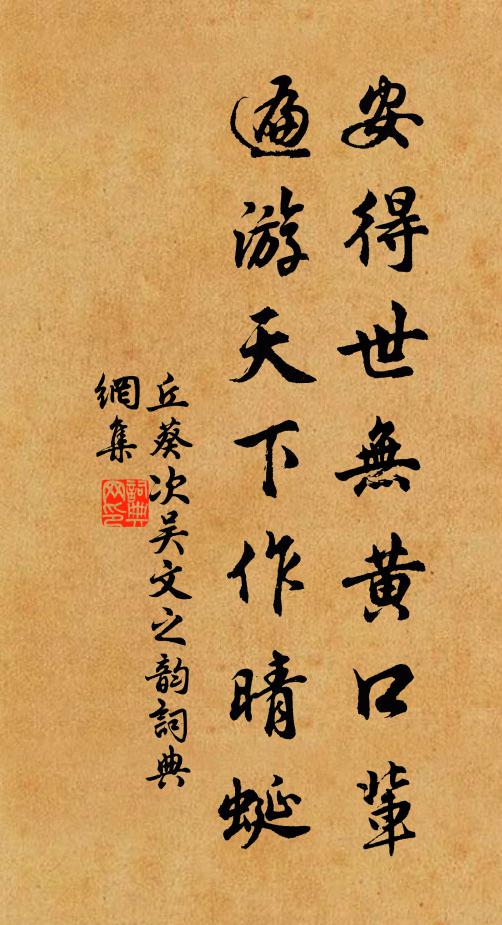 安得世無黃口輩
遍游天下作晴蜒
丘葵次吴文之韵詞典
網集
詞典
网印